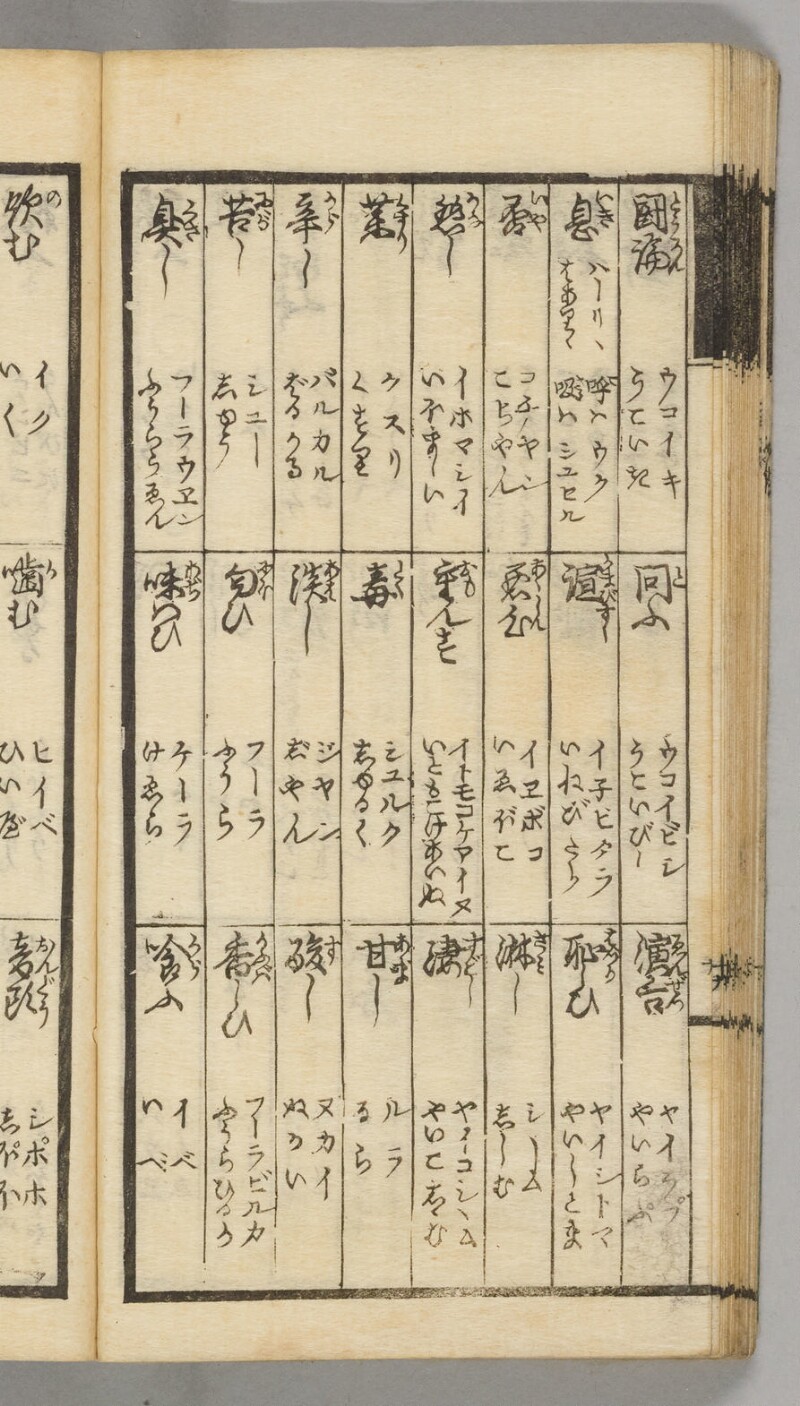 闘論
ウコイキ
うこいき
問ふ
と
ウコイビシ
うといびし
演舌
ゑんぜつ
ヤイラプ
やいらぷ
息
いき
呼ハウク
吸ハシユヒル
諠
イ子ビタラ
いねびたら
恥ひ
ヤイシトマ
やいしとま
否
いや
コチヤン
こちやん
イヱボコ
いゑぼこ
淋し
シーム
しーむ
愁し
イホマシイ
いほましい
重んず
おも
イトモコケアイヌ
凄し
ヤイコシヽム
薬
くすり
クスリ
くすり
毒
どく
シユルク
しゆるく
甘し
あま
ルラ
るら
辛し
から
パルカル
ぱるかる
淡し
あわ
ジヤン
ぢやん
酸し
す
ヌカイ
ぬかい
苦し
にが
シユー
しゆう
匂ひ
にほ
フーラ
ふうら
香しひ
フーラビルカ
ふうらひるか
臭し
くさ
フーラウヱン
ふうらうゑん
味ひ
あぢ
ケーラ
けゑら
喰ふ
くら
イベ
いべ
飲む
の
イク
いく
噛む
か
ヒイベ
ひいべ
シポホ
しぽほ